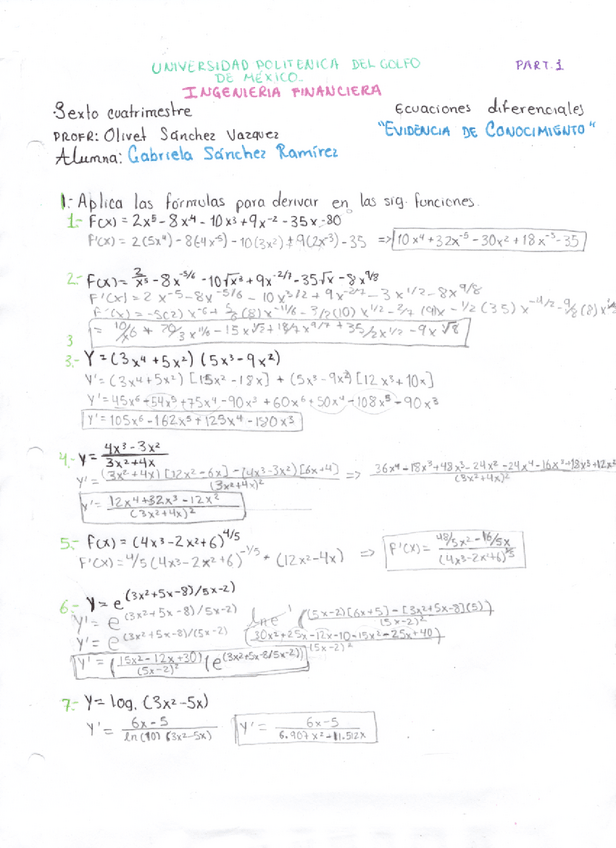 UNIVERSIDAD POLITENICA DEL GOLFO
DE MÉXICO.
PART. 1
INGENIERIA FINANCIERA
Sexto cuatrimestre
Ecuaciones diferenciales
PROFR: Olivet Sánchez Vazquez
"EVIDENCIA DE CONOCIMIENTO"
Alumna: Gabriela Sánchez Ramírez
1.- Aplica las fórmulas para derivar en las sig. funciones.
1.- F(x) = 2x⁵ - 8x⁻⁴ - 10x³ + 9x⁻² - 35x - 80
F'(x) = 2(5x⁴) - 8(-4x⁻⁵) - 10(3x²) + 9(2x⁻³) - 35 => 10x⁴ + 32x⁻⁵ - 30x² + 18x⁻³ - 35
2.- F(x) = 2/x⁵ - 8x⁻⁵/⁶ - 10√x³ + 9x⁻²/⁷ - 35√x - 8x⁹/⁸
3
3.- Y = (3x⁴ + 5x²) (5x³ - 9x²)
Y' = (3x⁴ + 5x²) [15x² - 18x] + (5x³ - 9x²) [12x³ + 10x]
Y' = 45x⁶ - 54x⁵ + 75x⁴ - 90x³ + 60x⁶ + 50x⁴ - 108x⁵ - 90x³
Y' = 105x⁶ - 162x⁵ + 125x⁴ - 180x³
4.- Y = 4x³ - 3x² / 3x² + 4x
Y' = (3x² + 4x) [12x² - 6x] - (4x³ - 3x²) [6x + 4] / (3x² + 4x)² =>
Y' = 12x⁴ + 32x³ - 12x² / (3x² + 4x)²
5.- F(x) = (4x³ - 2x² + 6)⁴/⁵
F'(x) = 4/5 (4x³ - 2x² + 6)⁻¹/⁵ + (12x² - 4x) => F'(x) = 48/5x² - 16/5x / (4x³ - 2x² + 6)¹/⁵
6.- Y = e^(3x² + 5x - 8)/5x - 2)
Y' = e^(3x² + 5x - 8)/5x - 2) (5x - 2) [6x + 5] - [3x² + 5x - 8] (5) / (5x - 2)²
Y' = e^(3x² + 5x - 8)/(5x - 2) 30x² + 25x - 12x - 10 - 15x² - 25x + 40) / (5x - 2)²
Y' = (15x² - 12x + 30 / (5x - 2)²) (e^(3x² + 5x - 8/5x - 2))
7.- Y = log. (3x² - 5x)
Y' = 6x - 5 / ln (10) (3x² - 5x) Y' = 6x - 5 / 6.907x² - 11.512x